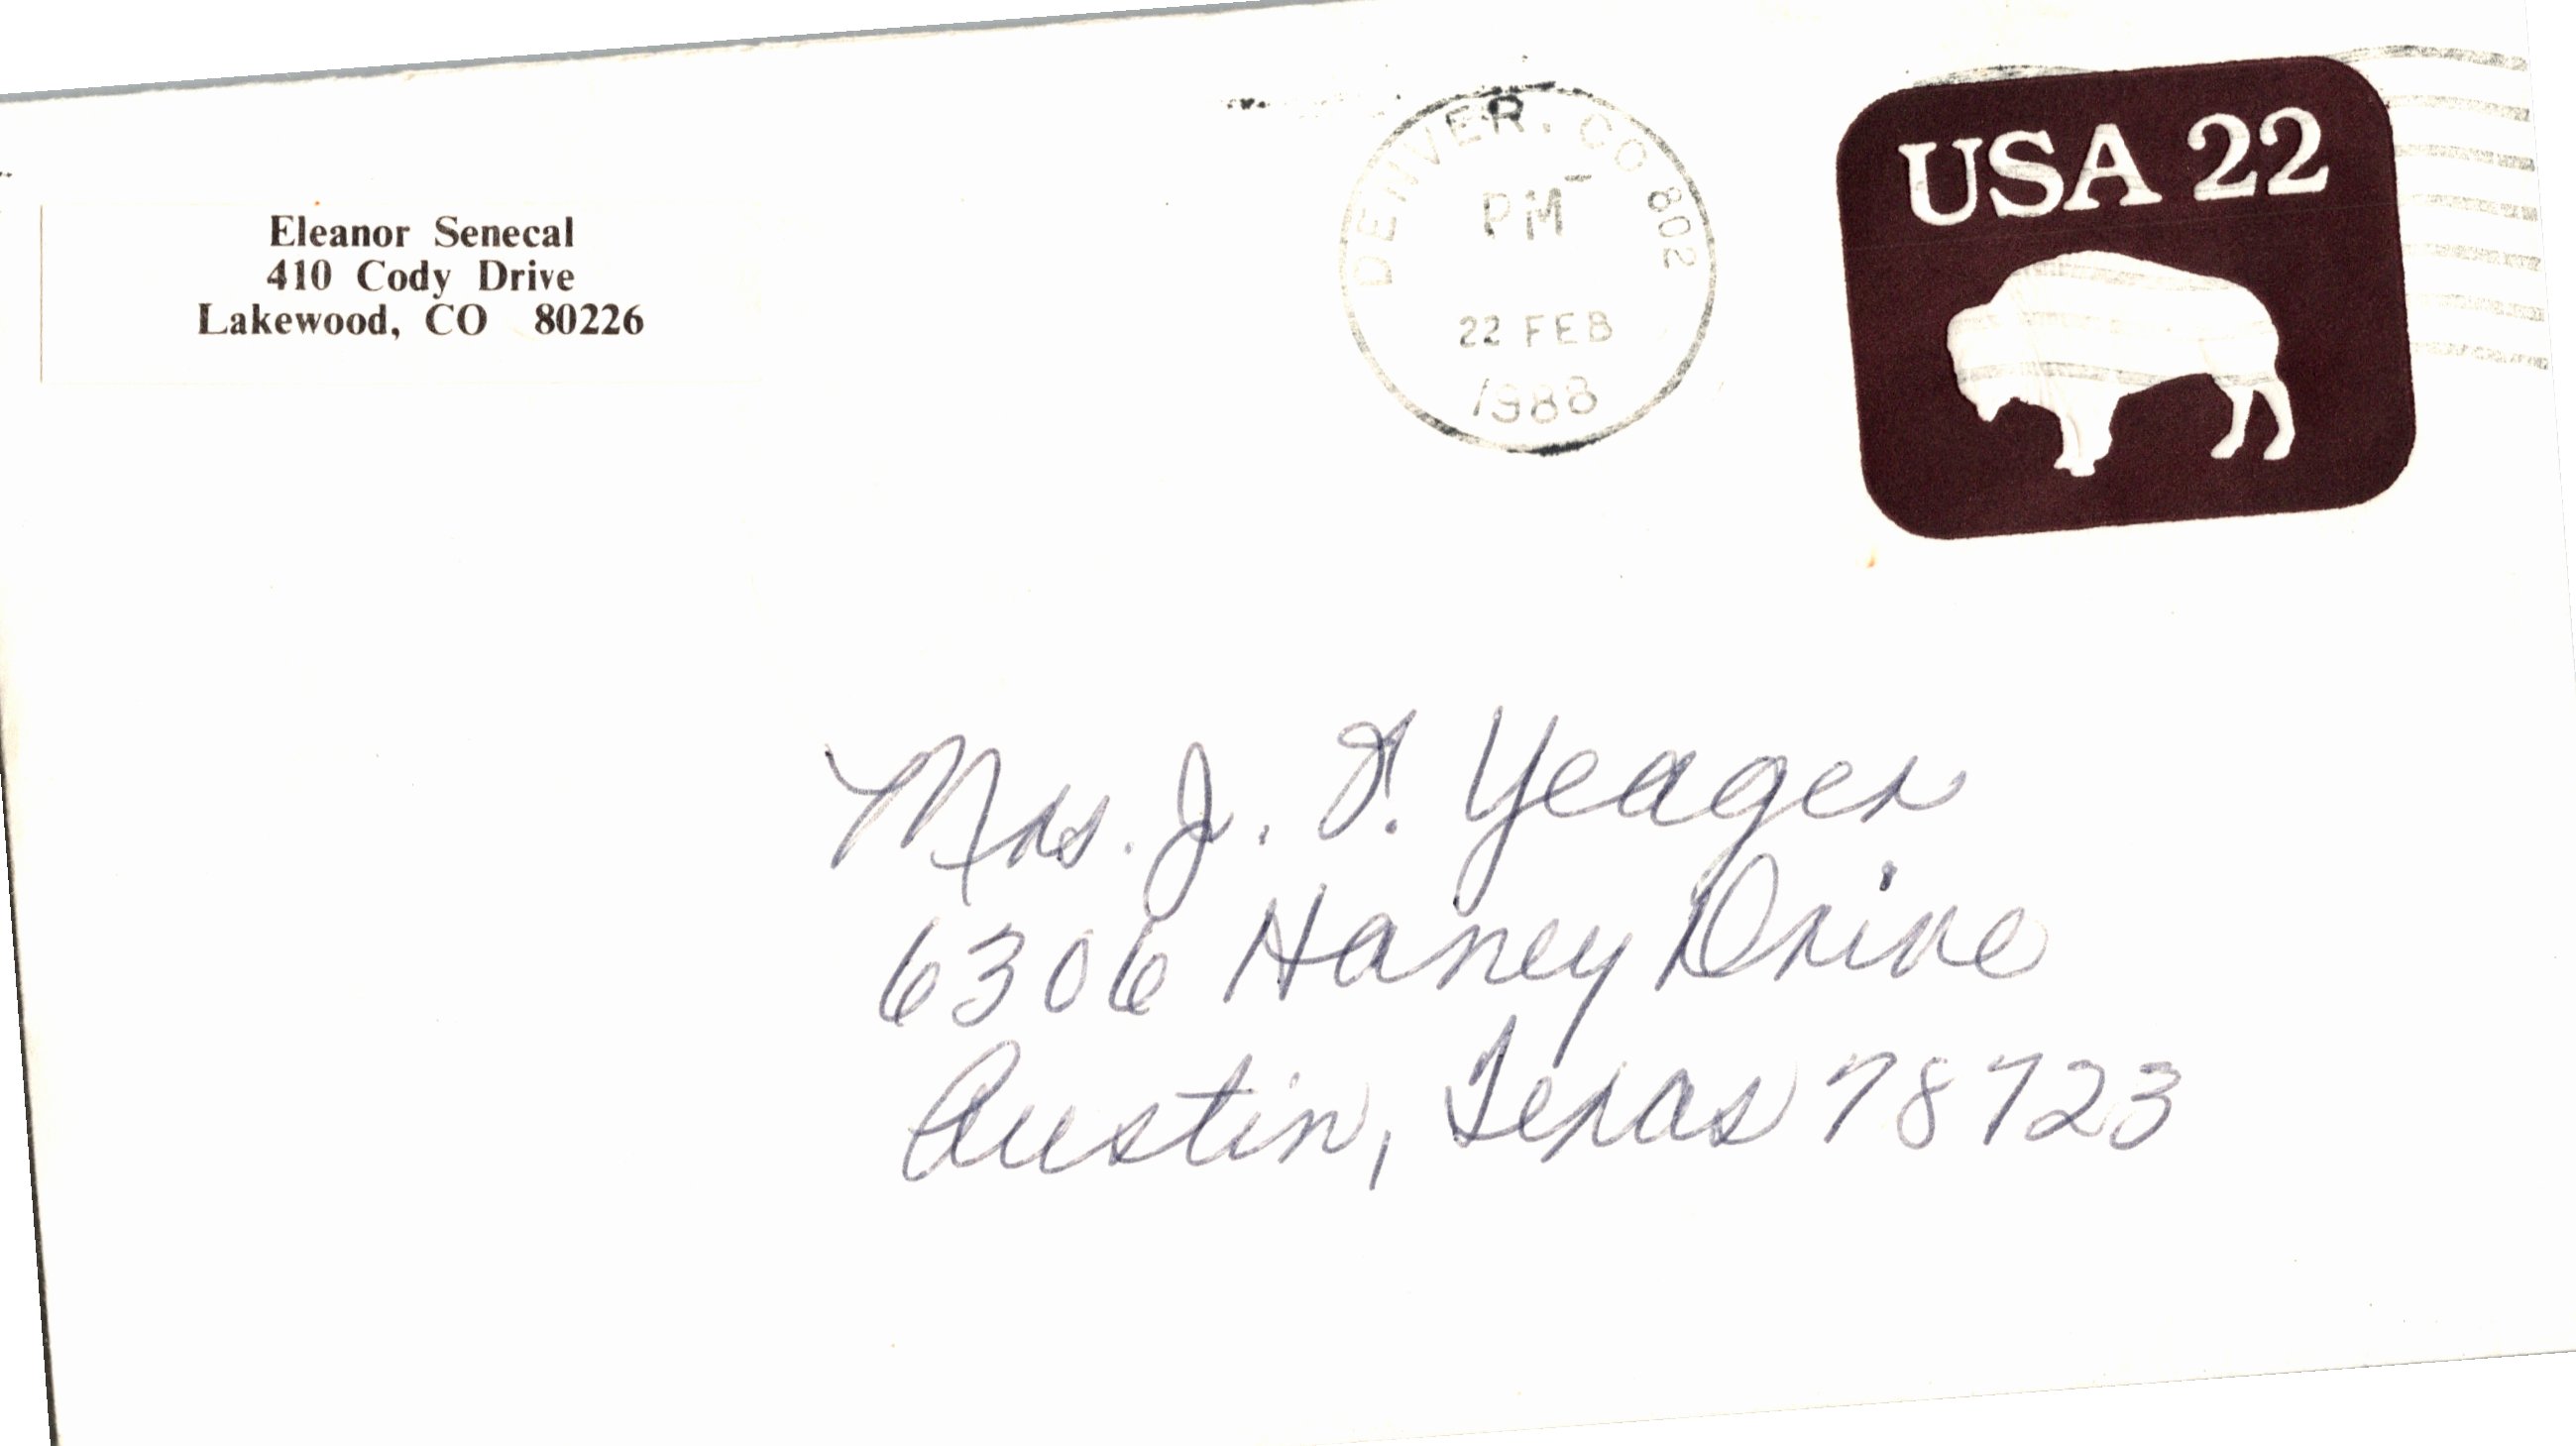 Eleanor Senecal
410 Cody Drive
Lakewood, CO 80226
DENVER, CO 802
PM
22 FEB
1988
USA 22
Mrs. J. Yeager
6306 Haney Drive
Austin, Texas 78723